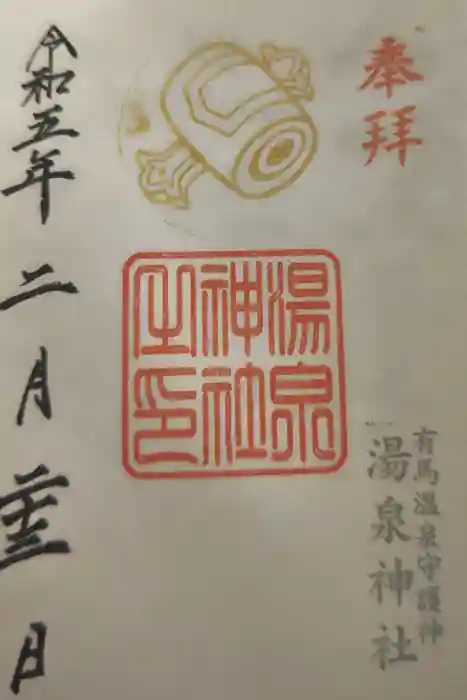 奉拝
有馬温泉守護神
湯泉神社
湯泉
神社
之印
令和五年二月二十三日